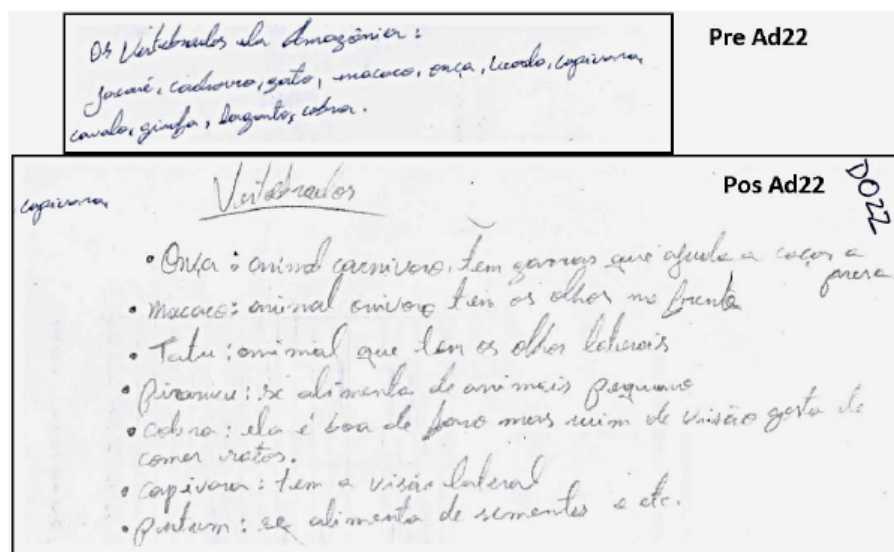 Pre Ad22
Os Vertebrados da Amazônia:
Jacaré, cachorro, gato, macaco, onça, veado, capivara,
cavalo, girafa, lagarto, cobra.
Pos Ad22
DO22
capivara,
Vertebrados
• Onça: animal carnivoro, tem garras que ajuda a caçar a
presa
• macaco: animal onivoro tem os olhos na frente
• Tatu: animal que tem os olhos laterais
• se alimenta de animais pequeno
• cobra: ela é boa de faro mas ruim de visão gosta de
comer ratos.
• capivara: tem a visão lateral
• se alimenta de sementes e etc.